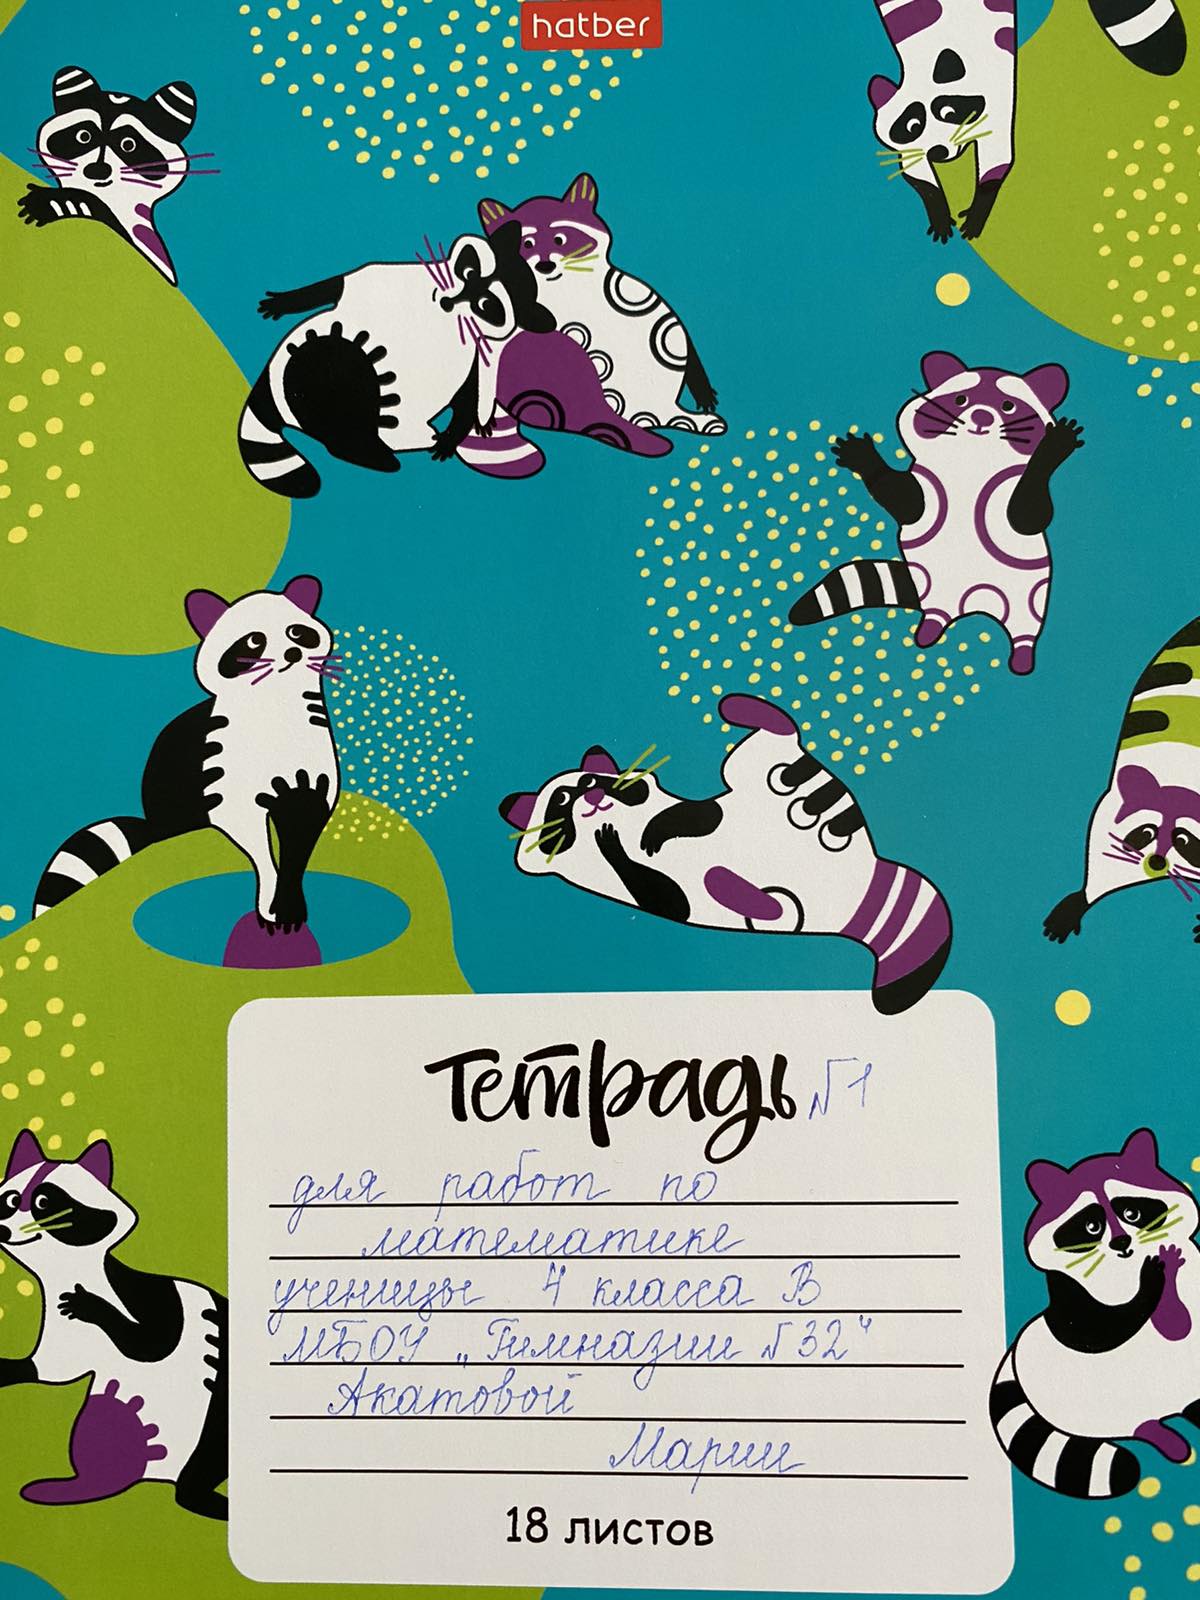 hatber
Тетрадь №1
для работ по
математике
ученицы 4 класса В
МБОУ „Гимназии №32"
Акатовой
Марии
18 листов